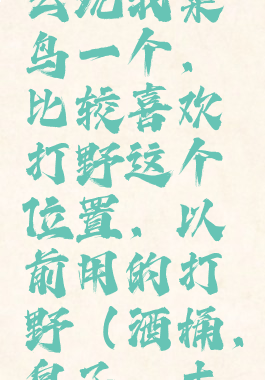 鸟一个，
比较喜欢
打野这个
位置，以
前用的打
野（酒桶，